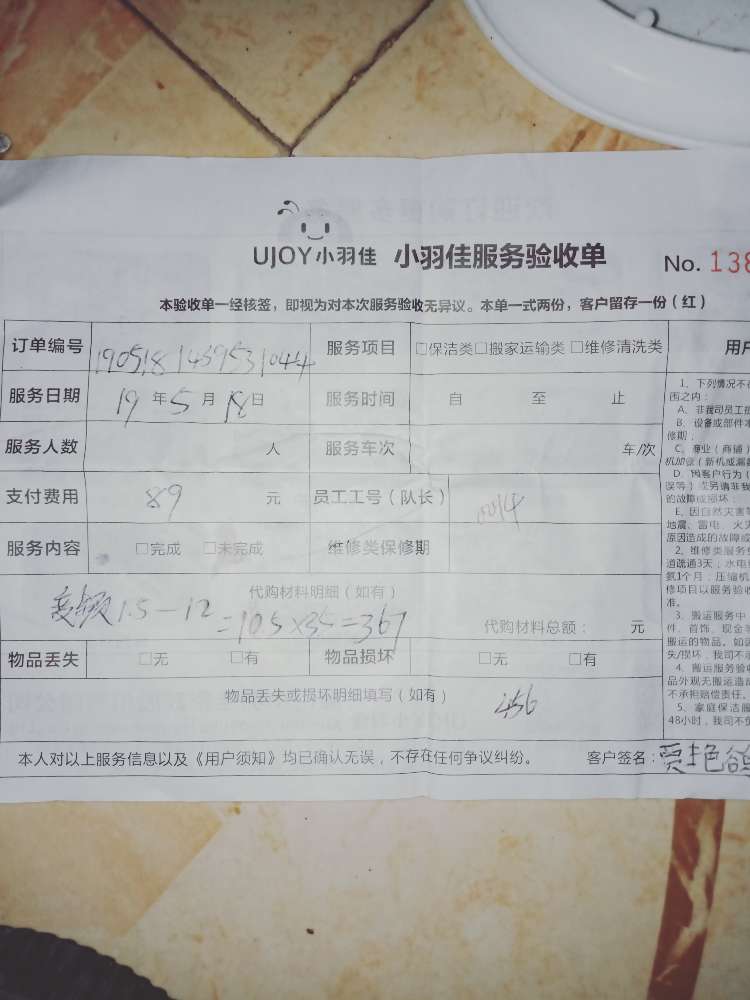 UJOY小羽佳 小羽佳服务验收单 No. 138
本验收单一经核签，即视为对本次服务验收无异议。本单一式两份，客户留存一份（红）
订单编号 190518 1459531044 服务项目 □保洁类□搬家运输类 □维修清洗类 用户
服务日期 19 年 5 月 18 日 服务时间 自 至 止
服务人数 人 服务车次 车/次
支付费用 89 元 员工工号（队长） 0014
服务内容 □完成 □未完成 维修类保修期
代购材料明细（如有）
变频 1.5－12 =10.5×35=367
代购材料总额： 元
物品丢失 □无 □有 物品损坏 □无 □有
物品丢失或损坏明细填写（如有） 456
本人对以上服务信息以及《用户须知》均已确认无误，不存在任何争议纠纷。 客户签名：贾艳
1、下列情况不在
围之内：
A、非我司员工
B、设备或部件
修期；
C、商业（商铺）
机加氨（新机或漏氨
D、因客户行为（
误等）或另请非我
的故障或损坏；
E、因自然灾害等
地震、雷电、火灾
原因造成的故障或
2、维修类服务
道疏通3天；水电
氨1个月；压缩机
修项目以服务验收
准。
3、搬运服务中
件、首饰、现金等
搬运的物品，如因
失/损坏，我司不承
4、搬运服务验收
品外观无搬运造成
不承担赔偿责任。
5、家庭保洁服
48小时，我司不负